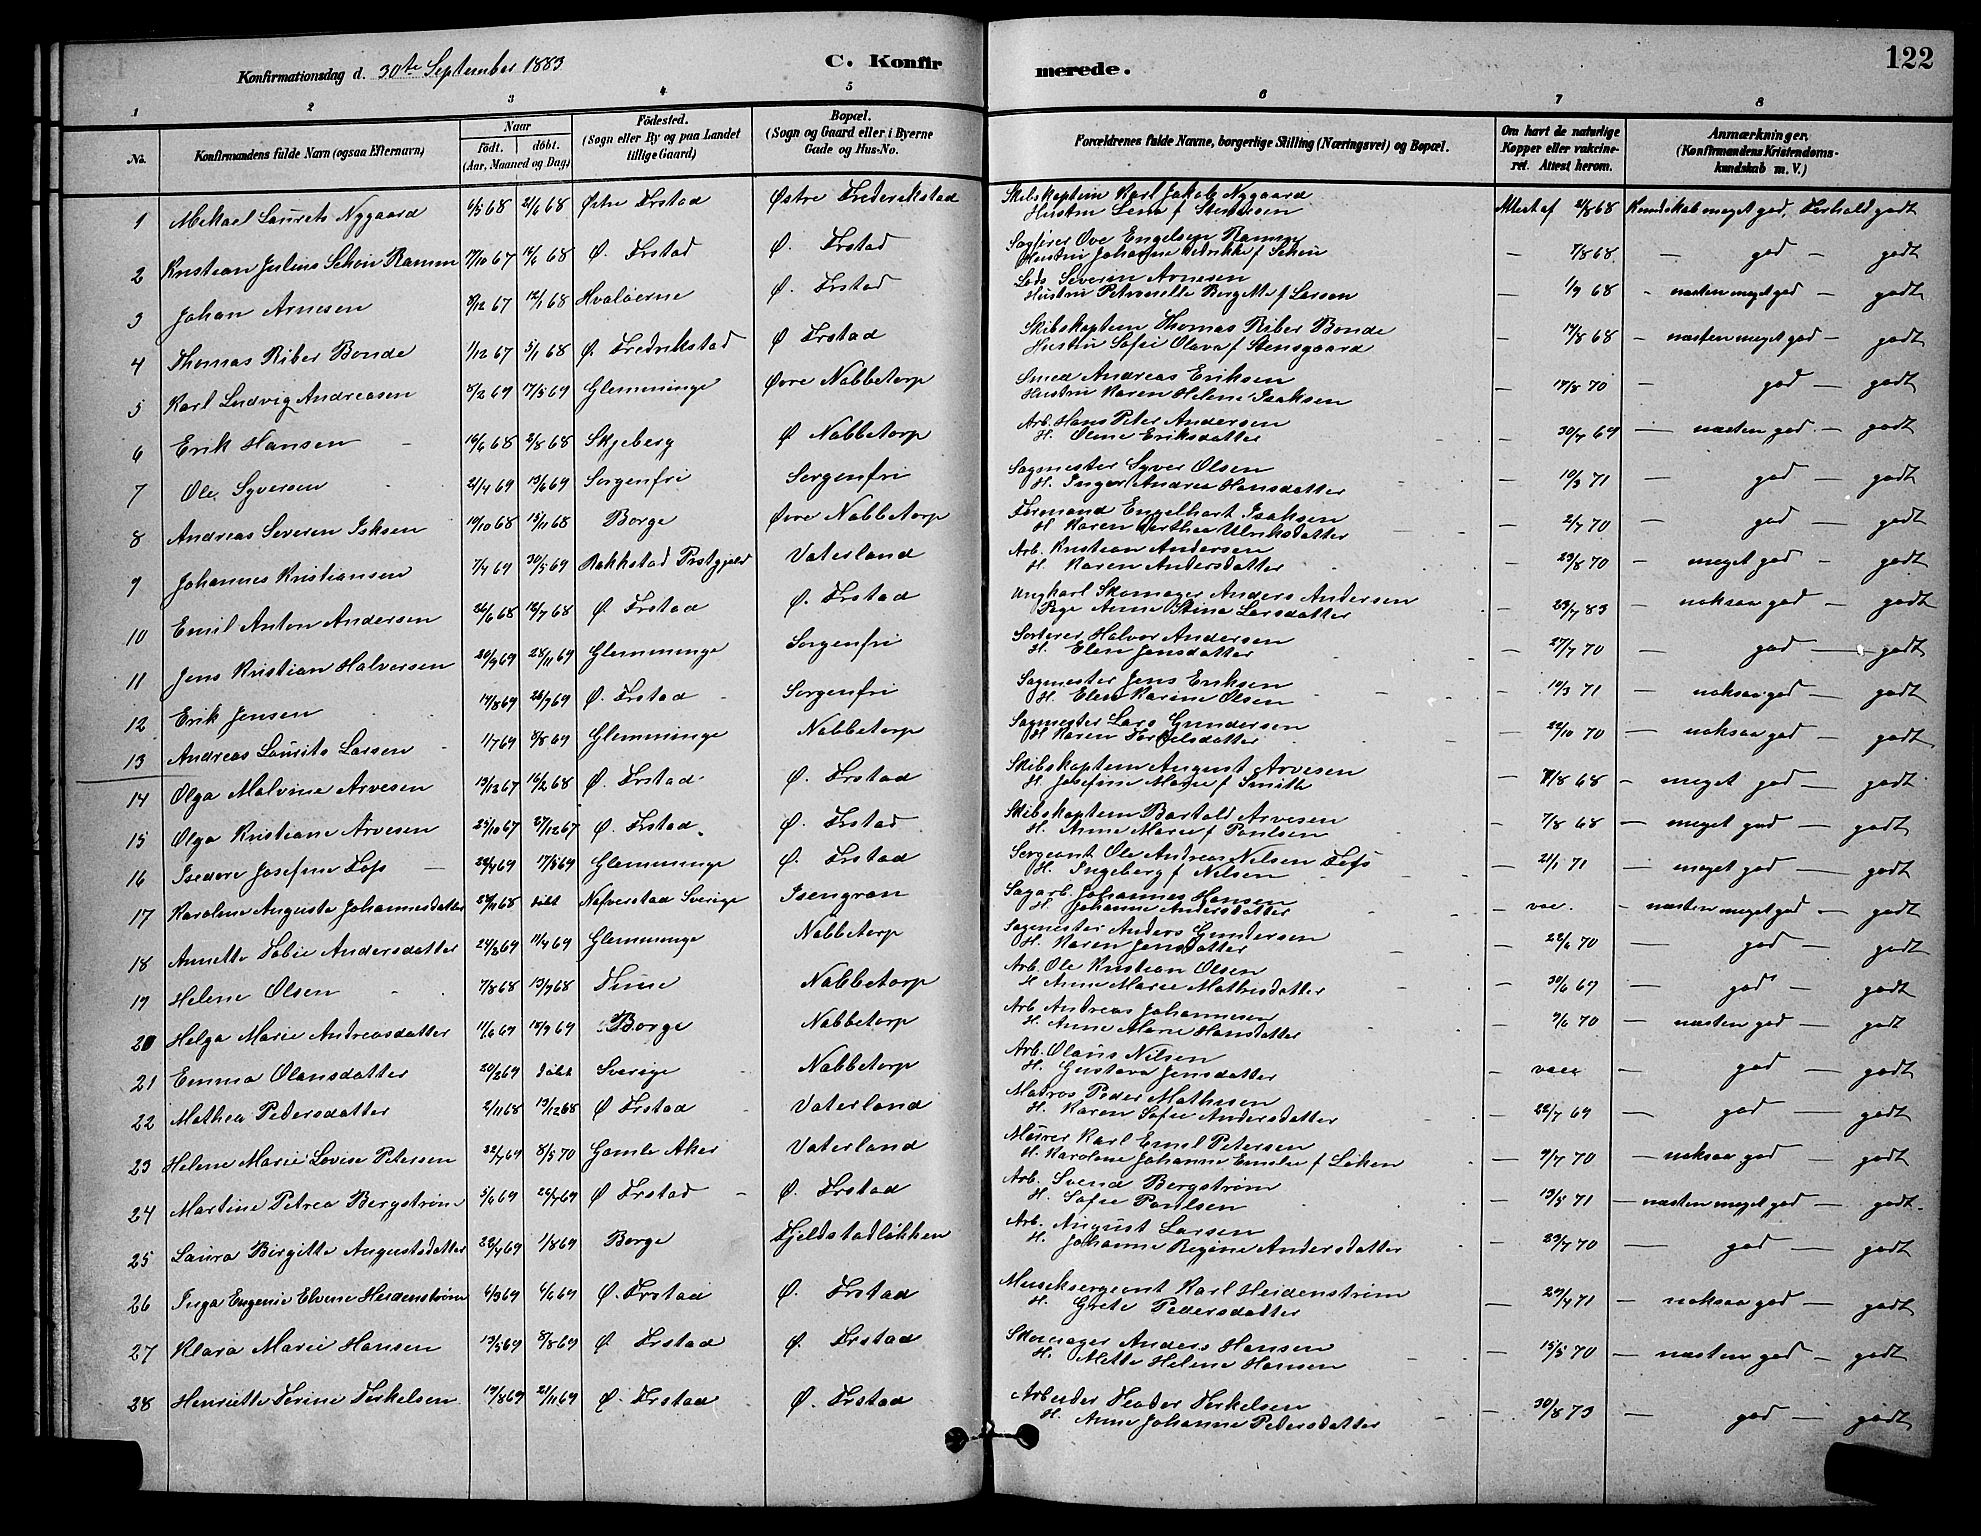 Konfirmationsdag d. 30te September 1883
C. Konfir
merede.
122
1 2 3 4 5 6 7 8
No. Konfirmandens fulde Navn (ogsaa Efternavn)
Naar
født. døbt.
(Aar, Maaned og Dag)
Fødested.
(Sogn eller By og paa Landet
tillige Gaard)
Bopæl.
(Sogn og Gaard eller i Byerne
Gade og Hus-No.
Forældrenes fulde Navne, borgerlige Stilling (Næringsvei) og Bopæl.
Om havt de naturlige
Kopper eller vakcine-
ret. Attest herom.
Anmærkninger.
(Konfirmandens Kristendoms-
kundskab m. V.)
1 Mikael Laurets Nygaard 6/5 68 21/6 68 Østre Frstad Østre Frederikstad Skibskaptein Karl Jakob Nygaard Attest af 2/8 68 Kundskab meget god, Forhold godt
Hustru Lena f Stensen
2 Kristian Julius Schøn Ramm 17/10 67 14/6 68 Ø. Frstad Ø. Frstad Sagfører Ove Engelsen Ramm — 7/8 68 — god — godt
Hustru Johanne Hedrikke f Schøn
3 Johan Arnesen 9/12 67 12/1 68 Hvaløerne Ø. Frstad Lods Severin Arnesen — 1/9 68 - næsten meget god — godt
Hustru Petronelle Bergitte f Larsen
4 Thomas Riber Bonde 1/12 67 5/1 68 Ø. Fredrikstad Ø Frstad Skibskaptein Thomas Riber Bonde — 17/8 68 — næsten meget god — godt
Hustru Sofie Olava f Stensgaard
5 Karl Ludvig Andreasen 8/2 69 17/5 69 Glemminge Øvre Nabbetorp Smed Andreas Eriksen — 17/8 70 — god — godt
Hustru Karen Helene Isaksen
6 Erik Hansen 16/6 68 2/8 68 Skjeberg Ø Nabbetorp Arb. Hans Peter Andersen — 30/7 69 — næsten god — godt
H. Oline Eriksdatter
7 Ole Syversen 21/4 69 13/6 69 Sorgenfri Sorgenfri Sagmester Syver Olsen — 10/3 71 — god — godt
H. Inger Andrea Hansdatter
8 Andreas Severen Isksen 10/10 68 15/11 68 Borge Øvre Nabbetorp Formand Engelhart Isaksen — 2/7 70 — god — godt
H Karen Berthea Ulriksdatter
9 Johannes Kristiansen 7/4 69 30/5 69 Rakkstad Prstgjeld Vaterland Arb. Kristian Andersen — 23/8 70 — meget god — godt
H. Karen Andersdatter
10 Emil Anton Andersen 26/6 68 12/7 68 Ø. Frstad Ø. Frstad Ungkarl Skomager Anders Andersen — 23/7 83 — noksaa god — godt
Pige Anne Stina Larsdatter
11 Jens Kristian Halversen 20/9 69 28/11 69 Glemminge Sorgenfri Sorterer Halvor Andersen — 27/7 70 — god — godt
H. Elen Jensdatter
12 Erik Jensen 14/8 69 26/9 69 Ø. Frstad Sorgenfri Sagmester Jens Eriksen — 10/3 71 — noksaa god — godt
H. Elen Karine Olsen
13 Andreas Laurits Larsen 1/7 69 8/8 69 Glemminge Nabbetorp Sagmester Lars Gundersen — 22/10 70 — noksaa god — godt
H Karen Torkelsdatter
14 Olga Malvine Arvesen 13/12 67 16/2 68 Ø. Frstad Ø. Frstad Skibskaptein August Arvesen — 7/8 68 — meget god — godt
H. Josefine Marie f Smith
15 Olga Kristiane Arvesen 25/10 67 27/12 67 Ø. Frstad Ø. Frstad Skibskaptein Bartold Arvesen — 7/8 68 — meget god — godt
H. Anne Marie f Paulsen
16 Isedore Josefine Fos 22/4 69 17/5 69 Glemminge Ø. Frstad Sergeant Ole Andreas Nilsen Fos — 21/1 71 — meget god — godt
H. Ingeborg f Nilsen
17 Karoline Auguste Johannesdatter 24/11 68 døbt Nafverstad Sverige Isengran Sagarb. Johannes Hansen — vac. — næsten meget god — godt
H. Johanne Andersdatter
18 Annette Tobie Andersdatter 24/2 69 11/4 69 Glemminge Nabbetorp Sagmester Anders Gundersen — 22/6 70 — god — godt
H. Karen Jensdatter
19 Helene Olsen 7/8 68 13/9 68 Tune Nabbetorp Arb. Ole Kristian Olsen — 30/6 69 — god — godt
H Anne Marie Mathisdatter
20 Helga Marie Andreasdatter 11/6 69 18/9 69 Borge Nabbetorp Arb Andreas Johannesen — 9/6 70 — næsten god — godt
H. Anne Marie Hansdatter
21 Emma Olausdatter 20/2 69 døbt Sverige Nabbetorp Arb. Olaus Nilsen — vacc — god — godt
H. Gustava Jensdatter
22 Mathea Pedersdatter 2/11 68 13/12 68 Ø Frstad Vaterland Matros Peder Mathisen — 22/7 69 — god — godt
H. Karen Sofie Andersdatter
23 Helene Marie Lovise Petersen 22/7 69 8/5 70 Gamle Aker Vaterland Murer Karl Emil Petersen — 9/7 70 — noksaa god — godt
H. Karoline Johanne Emelie f Løken
24 Martine Petrea Bergstrøm 5/6 69 22/7 69 Ø Frstad Ø. Frstad Arb. Svend Bergstrøm — 13/5 71 — næsten meget god — godt
H. Sofie Paulsen
25 Laura Birgitte Augustsdatter 22/4 69 1/8 69 Borge Fjeldstadløkken Arb. August Larsen — 23/7 70 — god — godt
H. Johanne Regine Andersdatter
26 Inga Eugenie Elvine Heidenstrøm 4/3 69 4/6 69 Ø. Frstad Ø. Frstad Museksergeant Karl Heidenstrøm — 29/4 71 — noksaa god — godt
H. Grete Pedersdatter
27 Klara Marie Hansen 13/5 69 8/8 69 Ø. Frstad Ø. Frstad Skomager Anders Hansen — 15/5 70 — næsten god — godt
H. Mette Helene Hansen
28 Henriette Terine Terkelsen 19/8 69 21/11 69 Ø. Frstad Ø. Frstad Arbeider Teodor Terkelsen — 30/8 73 — god — godt
H. Anne Johanne Pedersdatter